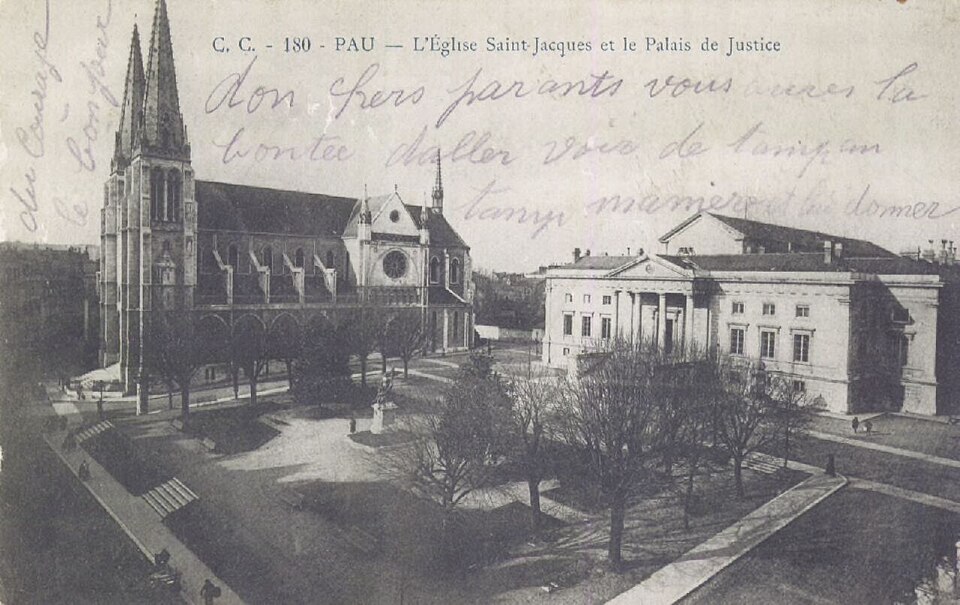 C. C. - 180 - PAU — L'Église Saint-Jacques et le Palais de Justice
don chers parants vous aures la
bontee daller voir de tamp an
tamp donner
du Courage
le